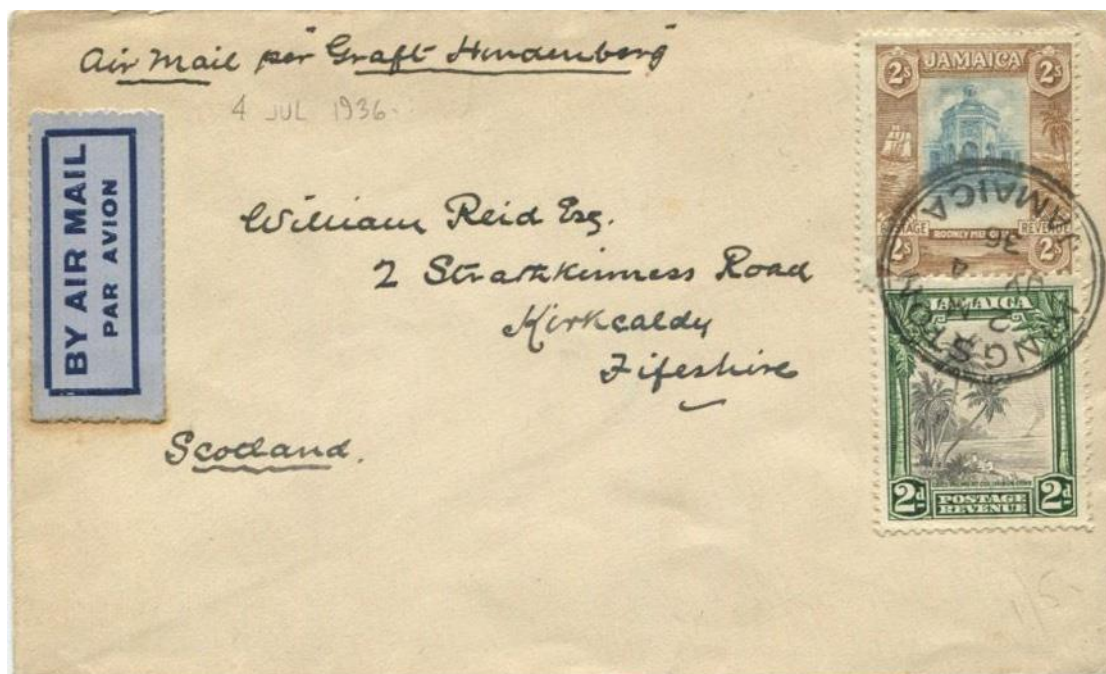 Air Mail per Graft Hindenberg
4 JUL 1936.
BY AIR MAIL
PAR AVION
William Reid Esq.
2 Strathkinness Road
Kirkcaldy
Fifeshire
Scotland.
2s JAMAICA 2s
POSTAGE REVENUE
2s 2s
KINGSTON
JAMAICA
36
JAMAICA
2d POSTAGE REVENUE 2d